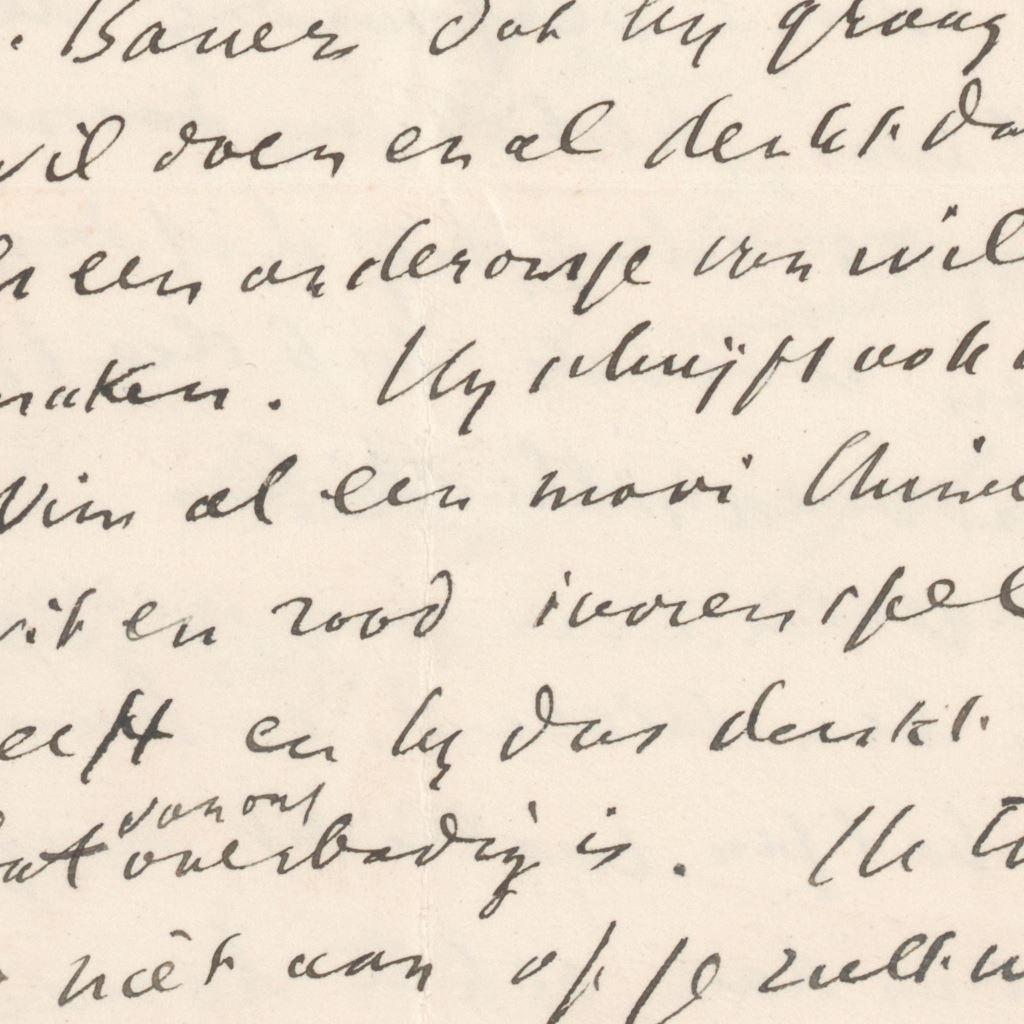 . Bauer dat hy graag
wil doen en al denkt da
een onderonsje van wil
maken. Hy schrijft ook
Wim al een mooi Chine
wit en rood ivoren spel
eeft en hy dus denkt
van ons
dat overbodig is. Ik
niet aan of je zult